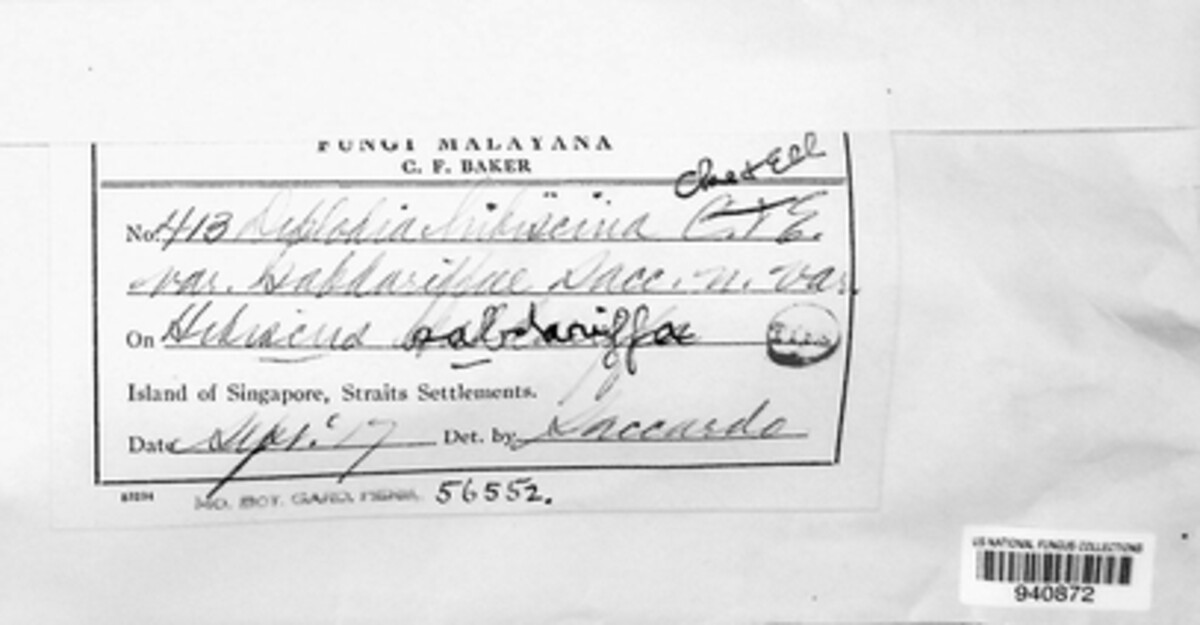 FUNGI MALAYANA
C. F. BAKER
Cke & Ell
No. 413 Diplodia hibiscina C. & E.
var. Sabdariffae Sacc. n. var.
On Hibiscus sabdariffa
Island of Singapore, Straits Settlements.
Date Sept. '17 Det. by Saccardo
MO. BOT. GARD. HERB. 56552.
US NATIONAL FUNGUS COLLECTIONS
940872